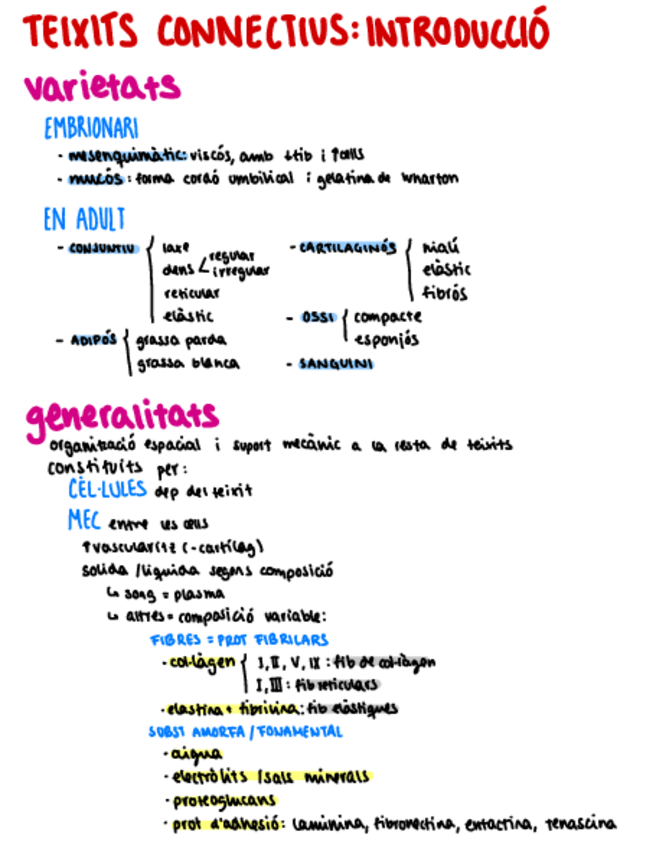 TEIXITS CONNECTIUS: INTRODUCCIÓ
varietats
EMBRIONARI
- mesenquimàtic: viscós, amb ↓fib i ↑cèlls
- mucós: forma cordó umbilical i gelatina de wharton
EN ADULT
- CONJUNTIU { laxe
dens < regular
irregular
reticular
elàstic
- ADIPÓS { grassa parda
grassa blanca
- CARTILAGINÓS { hialí
elàstic
fibrós
- OSSI { compacte
esponjós
- SANGUINI
generalitats
organització espacial i suport mecànic a la resta de teixits
constituïts per:
CÈL·LULES dep del teixit
MEC entre les cèlls
↑vascularitz (-cartílag)
solida / líquida segons composició
↳ sang = plasma
↳ altres = composició variable:
FIBRES = PROT FIBRILARS
· col·làgen { I, II, V, IX : fib de col·làgen
I, III : fib reticulars
· elastina + fibrilina: fib elàstiques
SUBST AMORFA / FONAMENTAL
· aigua
· electròlits / sals minerals
· proteoglucans
· prot d'adhesió: laminina, fibronectina, entactina, tenascina